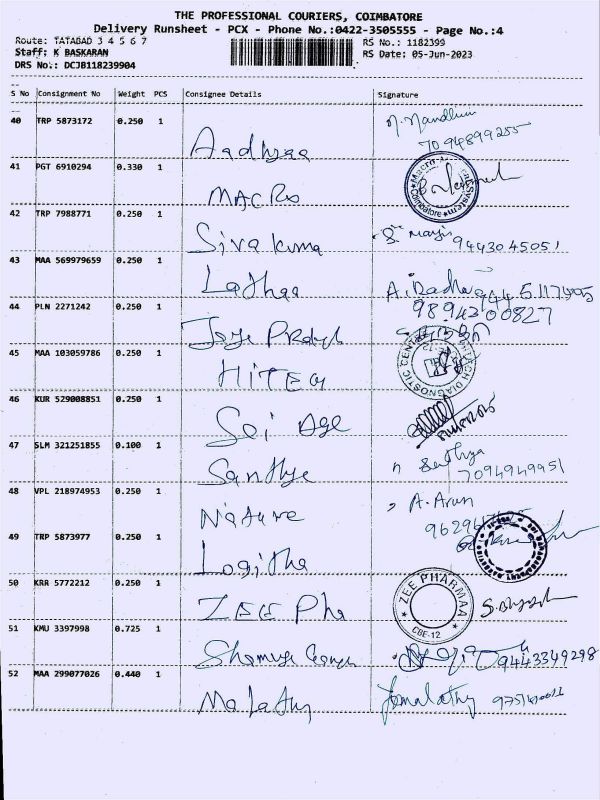 THE PROFESSIONAL COURIERS, COIMBATORE
Delivery Runsheet - PCX - Phone No.:0422-3505555 - Page No.:4
Route: TATABAD 3 4 5 6 7 RS No.: 1182399
Staff: K BASKARAN RS Date: 05-Jun-2023
DRS No.: DCJB118239904
S No Consignment No Weight PCS Consignee Details Signature
40 TRP 5873172 0.250 1 Aadhyaa 7094899255
41 PGT 6910294 0.330 1 MACRO Coimbatore
42 TRP 7988771 0.250 1 Siva Kuma 9443045051
43 MAA 569979659 0.250 1 Lathaa
44 PLN 2271242 0.250 1 9894300827
45 MAA 103059786 0.250 1 HITECH DIAGNOSTIC CENTRE
46 KUR 529008851 0.250 1 Sri Age
47 SLM 321251855 0.100 1 Sandhye 7094949951
48 VPL 218974953 0.250 1 Nature A. Arun
49 TRP 5873977 0.250 1 Logitha
50 KRR 5772212 0.250 1 ZEE Pha ZEE PHARMAA CBE-12
51 KMU 3397998 0.725 1 9443349298
52 MAA 299077026 0.440 1 Malathy